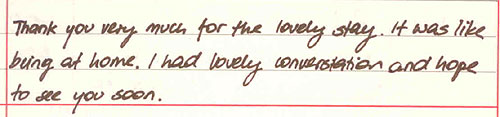 Thank you very much for the lovely stay. It was like
being at home. I had lovely converstation and hope
to see you soon.